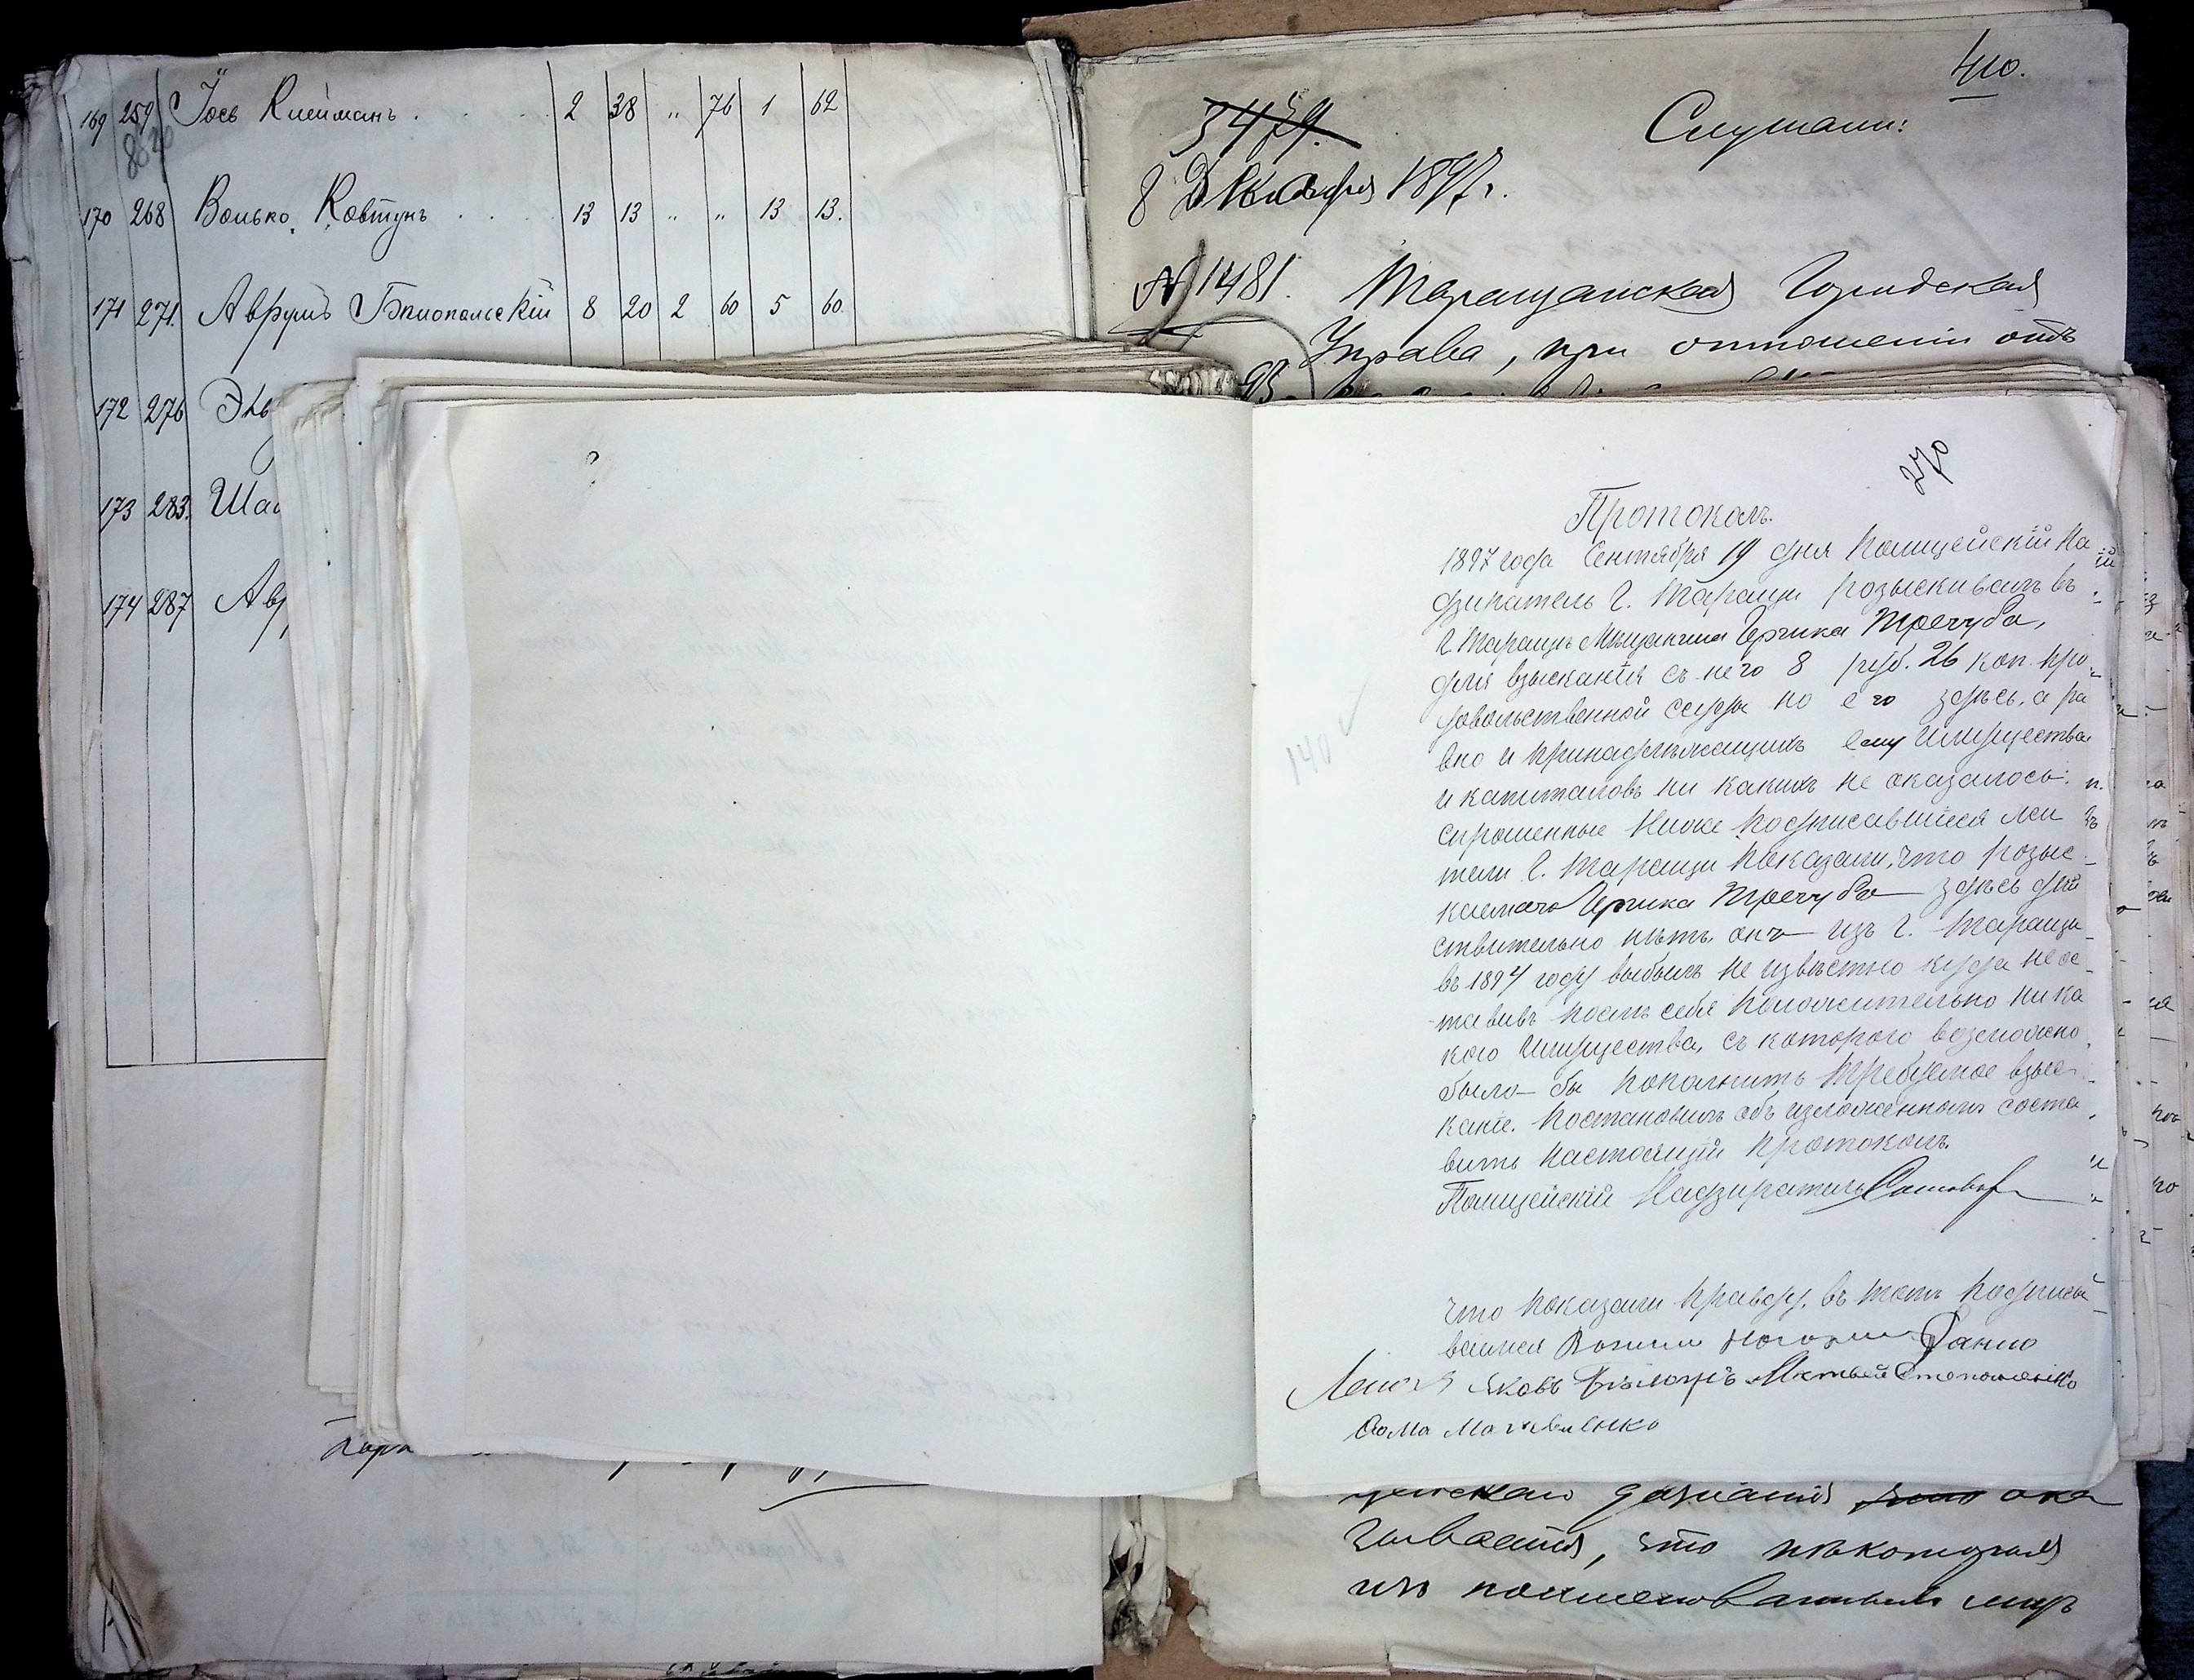 169 259 Іось Клейманъ 2 38 " 76 1 62
170 268 Волько Ковтунъ 13 13 " " 13 13.
171 271. Аврумъ Бѣлопольскій 8 20 2 60 5 60.
172 276
173 283.
174 287
410.
Слушали:
8 Декабря 1897 г.
№ 1481. Таращанская Городская
Управа, при отношеніи отъ
270
Протоколъ.
1897 года Сентября 19 дня Полицейскій На
дзиратель г. Таращи розыскивалъ въ
г. Таращѣ Мѣщанина Гершка Трегуба,
для взысканія съ него 8 руб. 26 коп. про-
довольственной ссуды но его здѣсь, а ра
вно и принадлежащихъ ему имущества
и капиталовъ ни какихъ не оказалось.
спрошенные ниже подписавшіеся жи
тели г. Таращи показали, что розыс-
каемаго Гершка Трегуба здѣсь дѣй
ствительно нѣтъ, онъ изъ г. Таращи
въ 1894 году выбылъ не извѣстно куда не ос-
тавивъ послѣ себя положительно ни ка
кого имущества, съ которого возможно
было бы пополнить требуемое взыс-
каніе. Постановилъ объ изложенномъ соста
вить настоящій протоколъ.
Полицейскій Надзиратель
140
что показали правду, въ томъ подписы
ваемся
Яковъ Матвей Степаненко
Фома Матвіенко
дознанія ока
зывается, что нѣкоторыя
изъ поименованныхъ лицъ